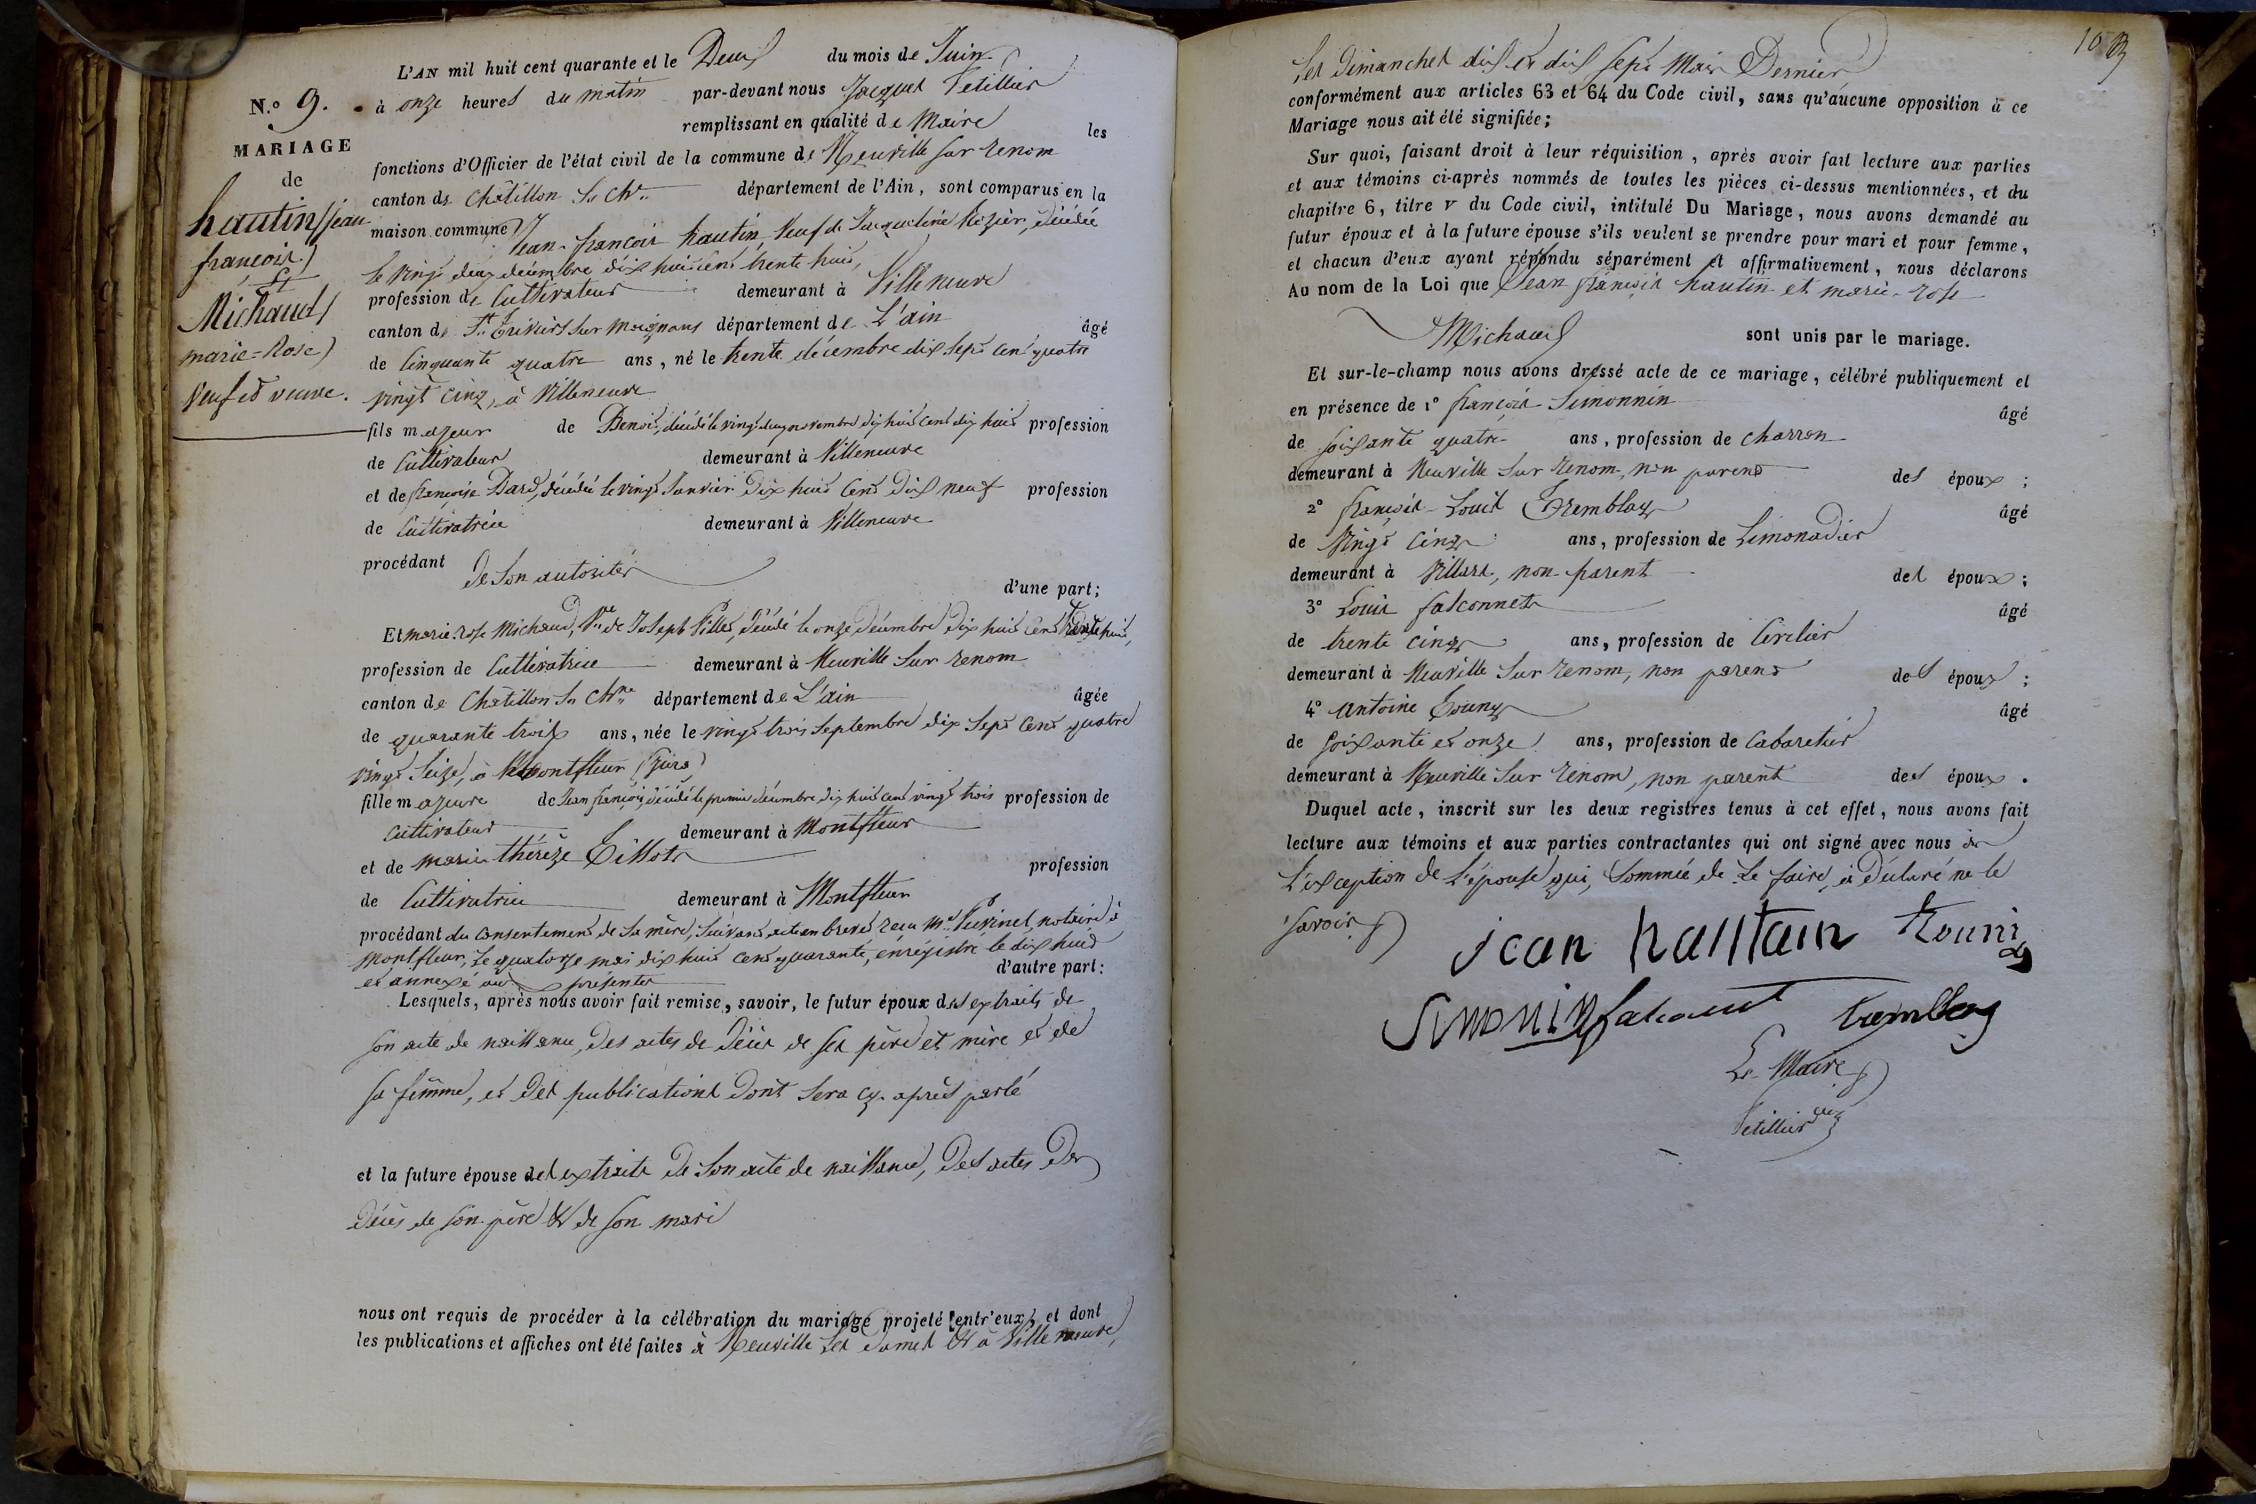 N.º 9.
MARIAGE
de
hautin jean
françois
Et
Michaud
marie=Rose
veuf et veuve.
L'AN mil huit cent quarante et le Deux du mois de Juin
à onze heures du matin par-devant nous Jacques Tetillier
remplissant en qualité de Maire les
fonctions d'Officier de l'état civil de la commune de Neuville sur Renom
canton de Châtillon sr Chne département de l'Ain, sont comparus en la
maison commune Jean-françois hautin, Veuf de Jacqueline Rozier, décédée
le vingt deux décembre dix huit cent trente huit,
profession de Cultivateur demeurant à Villeneuve
canton de St. Trivier sur Moignans département de L'ain âgé
de Cinquante quatre ans, né le trente décembre dix sept cent quatre
vingt cinq, à Villeneuve
fils majeur de Benoit, décédé le vingt deux novembre dix huit cent dix huit profession
de Cultivateur demeurant à Villeneuve
et de françoise Dard, décédée le vingt Janvier dix huit Cent Dix neuf profession
de Cultivatrice demeurant à Villeneuve
procédant de Son autorité
d'une part;
Et marie-rose Michaud, Ve de Joseph Pillet, décédé le onze Décembre Dix huit Cent trente huit,
profession de Cultivatrice demeurant à Neuville Sur Renom
canton de Châtillon Sr Chne département de L'ain âgée
de quarante trois ans, née le vingt trois Septembre dix Sept Cent quatre
vingt Seize, à Montfleur (Jura)
fille majeure de Jean françois, décédé le premier décembre dix huit cent vingt trois profession de
Cultivateur demeurant à Montfleur
et de marie thérèze Tillot profession
de Cultivatrice demeurant à Montfleur
procédant du Consentement de Sa mère, Suivant acte en brevet reçu Me. Puvinel, notaire à
Montfleur, le quatorze mai dix huit cent quarante, enrégistré le dix huit
et annexé aux présentes d'autre part:
Lesquels, après nous avoir fait remise, savoir, le futur époux des extraits de
Son acte de naissance, Des actes de Décès de Ses père et mère et de
Sa femme, et Des publications Dont Sera cy-après parlé
et la future épouse des extraits de Son acte de naissance, Des actes De
Décès de Son père & de Son mari
nous ont requis de procéder à la célébration du mariage projeté entr'eux, et dont
les publications et affiches ont été faites à Neuville Les Dames & à Villeneuve,
163
Les Dimanches dix et dix Sept Mai Dernier
conformément aux articles 63 et 64 du Code civil, sans qu'aucune opposition à ce
Mariage nous ait été signifiée;
Sur quoi, faisant droit à leur réquisition, après avoir fait lecture aux parties
et aux témoins ci-après nommés de toutes les pièces ci-dessus mentionnées, et du
chapitre 6, titre v du Code civil, intitulé Du Mariage, nous avons demandé au
futur époux et à la future épouse s'ils veulent se prendre pour mari et pour femme,
et chacun d'eux ayant répondu séparément et affirmativement, nous déclarons
Au nom de la Loi que Jean françois hautin et marie-rose
Michaud sont unis par le mariage.
Et sur-le-champ nous avons dressé acte de ce mariage, célébré publiquement et
en présence de 1º françois Simonnin âgé
de soixante quatre ans, profession de Charron
demeurant à Neuville Sur Renom, non parent des époux;
2º françois-Louis Tremblay âgé
de Vingt Cinq ans, profession de Limonadier
demeurant à Villars, non-parent des époux;
3º Louis falconnet âgé
de trente cinq ans, profession de Cerclier
demeurant à Neuville Sur Renom, non parent des époux;
4º antoine Touny âgé
de Soixante et onze ans, profession de Cabaretier
demeurant à Neuville Sur Renom, non parent des époux.
Duquel acte, inscrit sur les deux registres tenus à cet effet, nous avons fait
lecture aux témoins et aux parties contractantes qui ont signé avec nous à
L'exception de L'épouse qui, Sommée de Le faire, a Déclaré ne le
Savoir
jean hautain
Simonin
tremblay
Le Maire
Tetillier